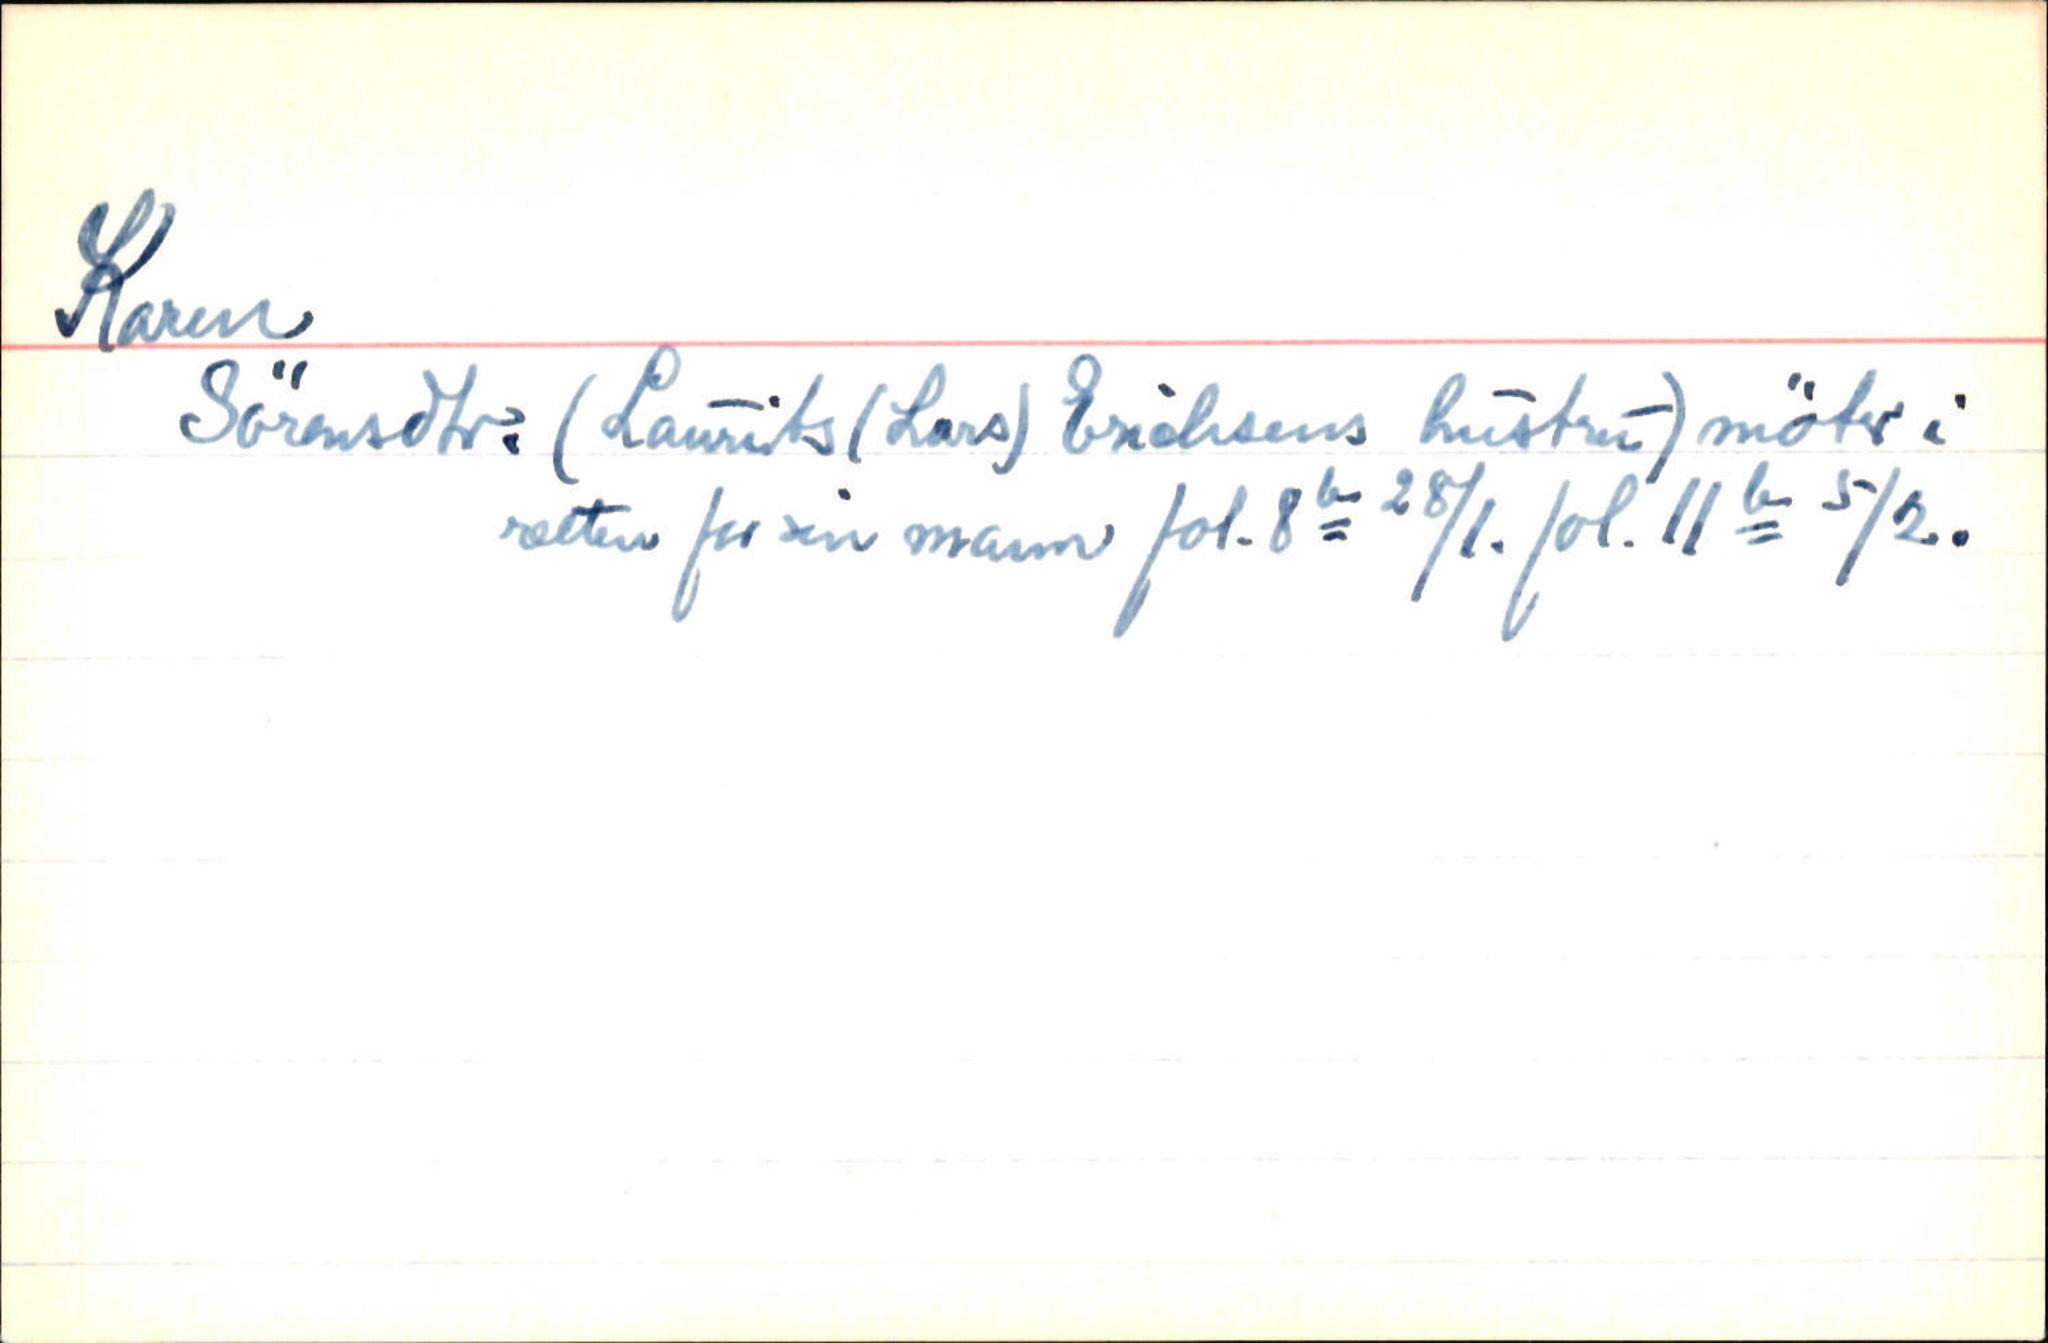 Karen
Sörensdtr: (Laurits (Lars) Erichsens hustru) möter i
retten for sin mann fol. 8b 28/1. fol. 11b 5/2.